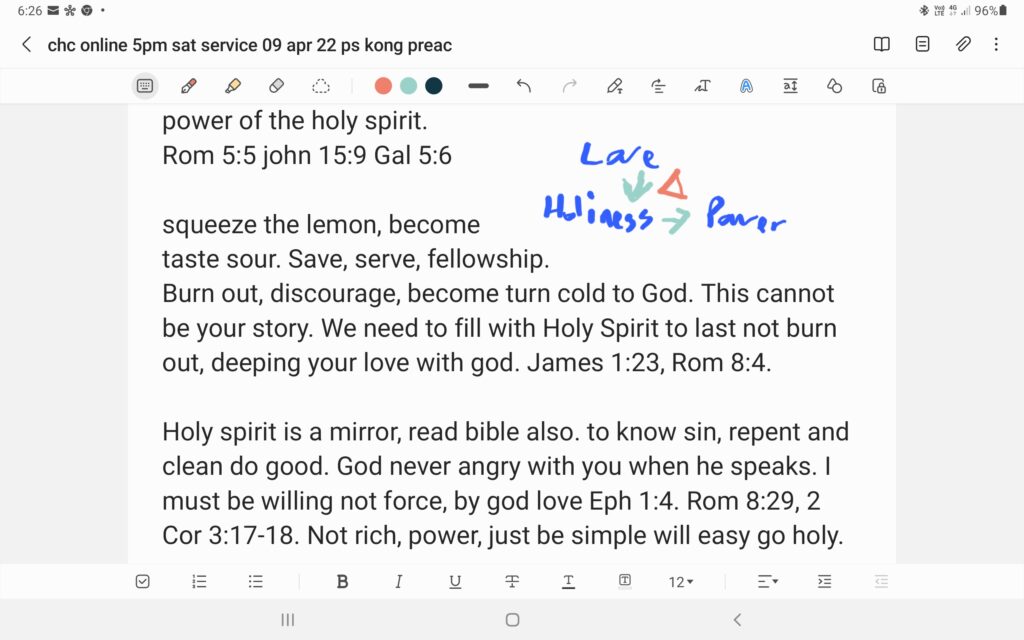 6:26
Vo) LTE 4G 96%
chc online 5pm sat service 09 apr 22 ps kong preac
power of the holy spirit.
Rom 5:5 john 15:9 Gal 5:6
Love
Holiness → Power
squeeze the lemon, become
taste sour. Save, serve, fellowship.
Burn out, discourage, become turn cold to God. This cannot
be your story. We need to fill with Holy Spirit to last not burn
out, deeping your love with god. James 1:23, Rom 8:4.
Holy spirit is a mirror, read bible also. to know sin, repent and
clean do good. God never angry with you when he speaks. I
must be willing not force, by god love Eph 1:4. Rom 8:29, 2
Cor 3:17-18. Not rich, power, just be simple will easy go holy.
B I U T T T 12